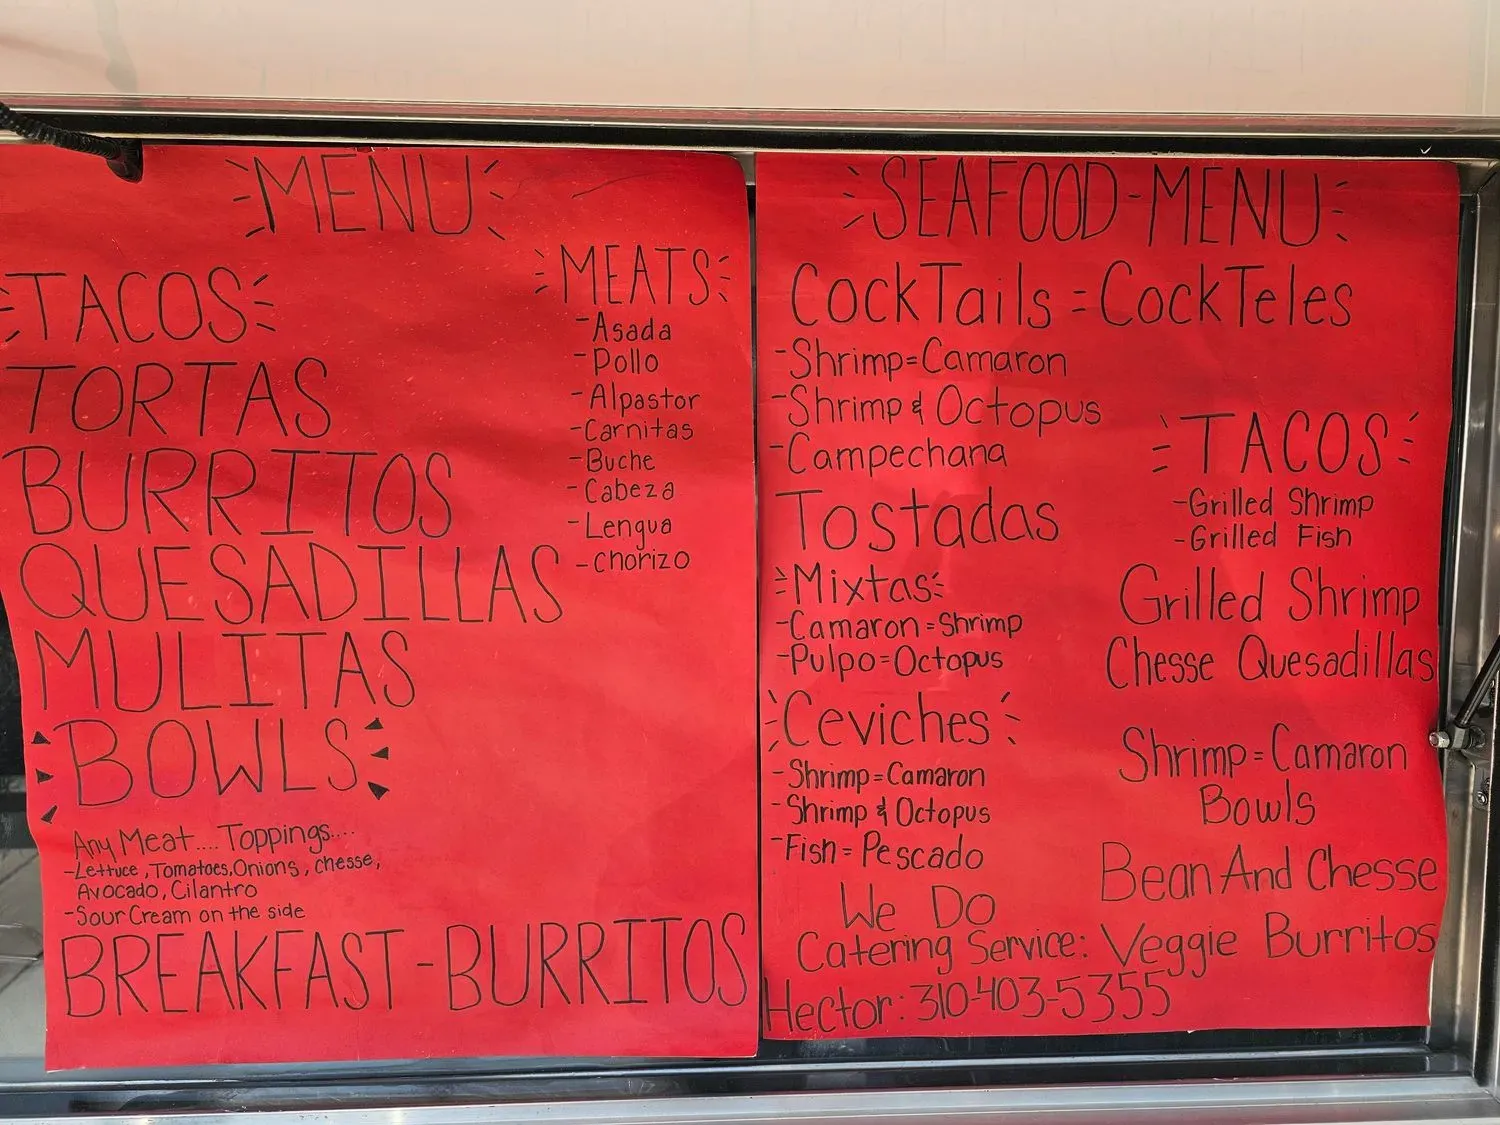 MENU
TACOS
TORTAS
BURRITOS
QUESADILLAS
MULITAS
BOWLS
Any Meat.... Toppings....
-Lettuce, Tomatoes, Onions, chesse,
Avocado, Cilantro
-Sour Cream on the side
BREAKFAST-BURRITOS
MEATS
-Asada
-Pollo
-Alpastor
-Carnitas
-Buche
-Cabeza
-Lengua
-Chorizo
SEAFOOD-MENU
CockTails = CockTeles
-Shrimp=Camaron
-Shrimp & Octopus
-Campechana
Tostadas
Mixtas
-Camaron=Shrimp
-Pulpo=Octopus
Ceviches
-Shrimp=Camaron
-Shrimp & Octopus
-Fish=Pescado
We Do
Catering Service:
Hector: 310-403-5355
TACOS
-Grilled Shrimp
-Grilled Fish
Grilled Shrimp
Chesse Quesadillas
Shrimp=Camaron
Bowls
Bean And Chesse
Veggie Burritos